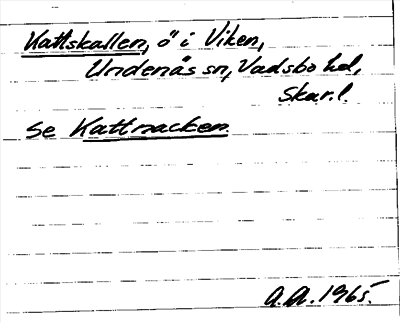 Kattskallen, ö i Viken,
Undenäs sn, Vadsbo hd,
Skar. l.
se Kattnacken.
A.A. 1965.